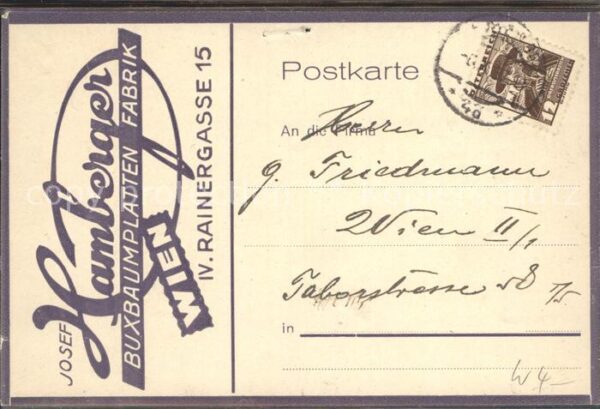 JOSEF
Hamberger
BUXBAUMPLATTEN FABRIK
WIEN
IV. RAINERGASSE 15
Postkarte
An die Firma
Herrn
g. Friedmann
Wien II/1
Taborstrasse 58
in
12
W4-